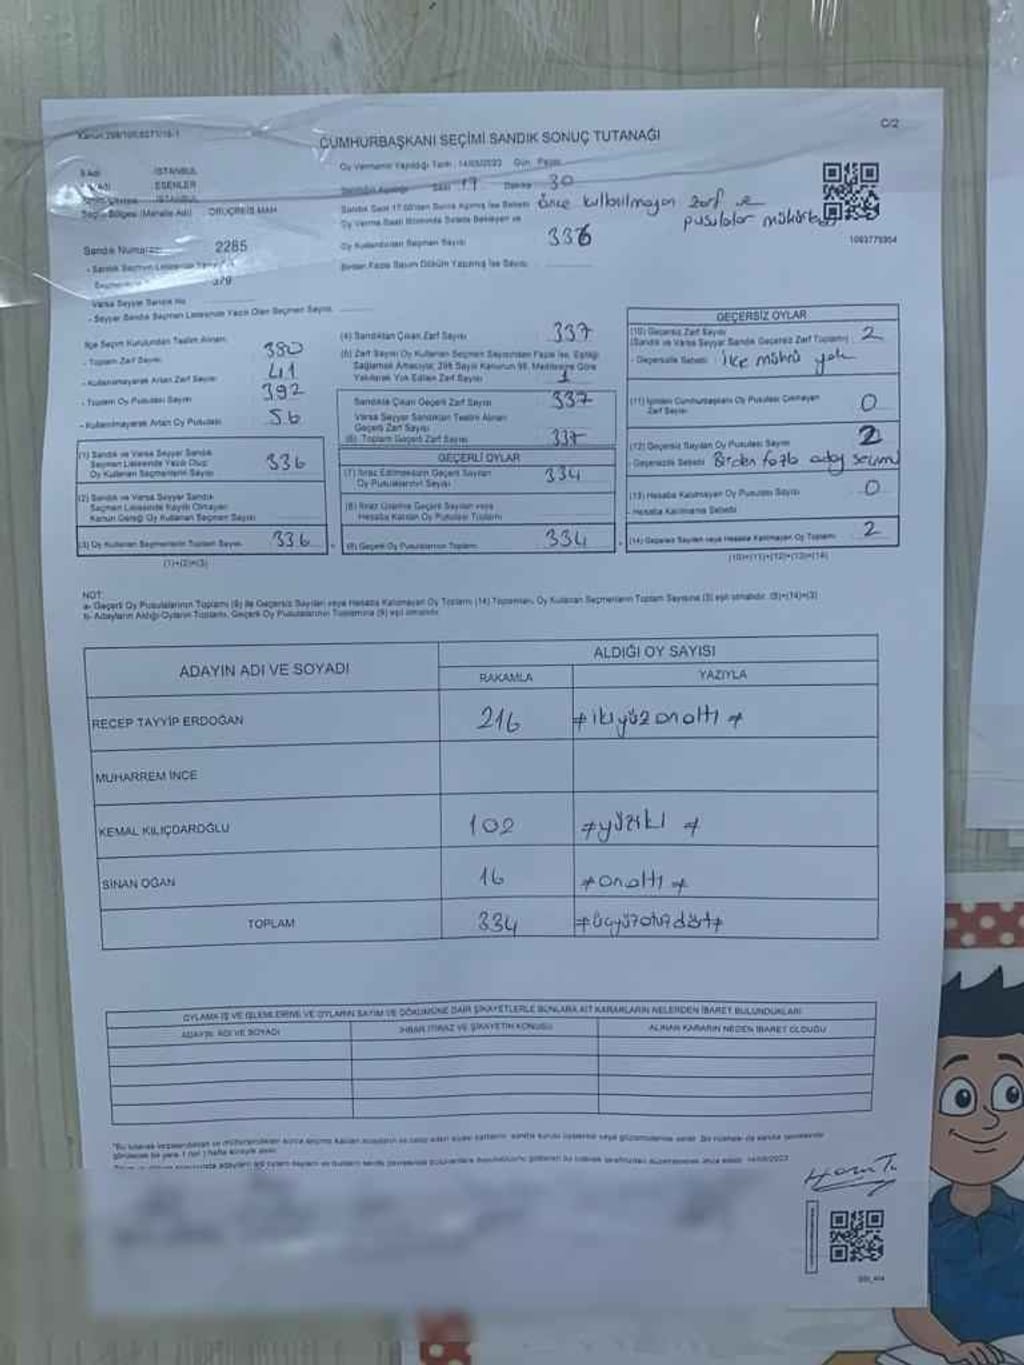 C/2
CUMHURBAŞKANI SEÇİMİ SANDIK SONUÇ TUTANAĞI
Oy Vermenin Yapıldığı Tarih : 14/05/2023 Gün : Pazar
İSTANBUL
ESENLER
Saat 17 Dakika 30
İSTANBUL
Seçim Bölgesi (Mahalle Adı) ORUÇREİS MAH.
önce kullanılmayan zarf ve
pusulalar mühürlendi
Sandık Numarası 2285
Oy Kullandırılan Seçmen Sayısı 336
1093779904
Birden Fazla Sayım Döküm Yapılmış İse Sayısı
379
Varsa Seyyar Sandık No
- Seyyar Sandık Seçmen Listesinde Yazılı Olan Seçmen Sayısı
İlçe Seçim Kurulundan Teslim Alınan
- Toplam Zarf Sayısı 380
- Kullanılmayarak Artan Zarf Sayısı 41
- Toplam Oy Pusulası Sayısı 392
- Kullanılmayarak Artan Oy Pusulası 56
(1) Sandık ve Varsa Seyyar Sandık
Seçmen Listesinde Yazılı Olup
Oy Kullanan Seçmenlerin Sayısı 336
(2) Sandık ve Varsa Seyyar Sandık
Seçmen Listesinde Kayıtlı Olmayan
Kanun Gereği Oy Kullanan Seçmen Sayısı
(3) Oy Kullanan Seçmenlerin Toplam Sayısı 336
(1)+(2)=(3)
(4) Sandıktan Çıkan Zarf Sayısı 337
(5) Zarf Sayısı Oy Kullanan Seçmen Sayısından Fazla İse, Eşitliği
Sağlamak Amacıyla, 298 Sayılı Kanunun 98. Maddesine Göre
Yakılarak Yok Edilen Zarf Sayısı 1
Sandıkta Çıkan Geçerli Zarf Sayısı 337
Varsa Seyyar Sandıktan Teslim Alınan
Geçerli Zarf Sayısı
(6) Toplam Geçerli Zarf Sayısı 337
GEÇERLİ OYLAR
(7) İtiraz Edilmeksizin Geçerli Sayılan
Oy Pusulalarının Sayısı 334
(8) İtiraz Üzerine Geçerli Sayılan veya
Hesaba Katılan Oy Pusulası Toplamı
(9) Geçerli Oy Pusulalarının Toplamı 334
GEÇERSİZ OYLAR
(10) Geçersiz Zarf Sayısı 2
(Sandık ve Varsa Seyyar Sandık Geçersiz Zarf Toplamı)
- Geçersizlik Sebebi İlçe mührü yok
(11) İçinden Cumhurbaşkanı Oy Pusulası Çıkmayan
Zarf Sayısı 0
(12) Geçersiz Sayılan Oy Pusulası Sayısı 2
- Geçersizlik Sebebi Birden fazla aday seçimi
(13) Hesaba Katılmayan Oy Pusulası Sayısı 0
- Hesaba Katılmama Sebebi
(14) Geçersiz Sayılan veya Hesaba Katılmayan Oy Toplamı 2
(10)+(11)+(12)+(13)=(14)
NOT:
a- Geçerli Oy Pusulalarının Toplamı (9) ile Geçersiz Sayılan veya Hesaba Katılmayan Oy Toplamı (14) Toplamları, Oy Kullanan Seçmenlerin Toplam Sayısına (3) eşit olmalıdır. (9)+(14)=(3)
b- Adayların Aldığı Oyların Toplamı, Geçerli Oy Pusulalarının Toplamına (9) eşit olmalıdır.
ADAYIN ADI VE SOYADI
ALDIĞI OY SAYISI
RAKAMLA YAZIYLA
RECEP TAYYİP ERDOĞAN 216 #ikiyüzonaltı#
MUHARREM İNCE
KEMAL KILIÇDAROĞLU 102 #yüziki#
SİNAN OĞAN 16 #onaltı#
TOPLAM 334 #üçyüzotuzdört#
OYLAMA İŞ VE İŞLEMLERİNE VE OYLARIN SAYIM VE DÖKÜMÜNE DAİR ŞİKAYETLERLE BUNLARA AİT KARARLARIN NELERDEN İBARET BULUNDUKLARI
ADAYIN ADI VE SOYADI İHBAR İTİRAZ VE ŞİKAYETİN KONUSU ALINAN KARARIN NEDEN İBARET OLDUĞU